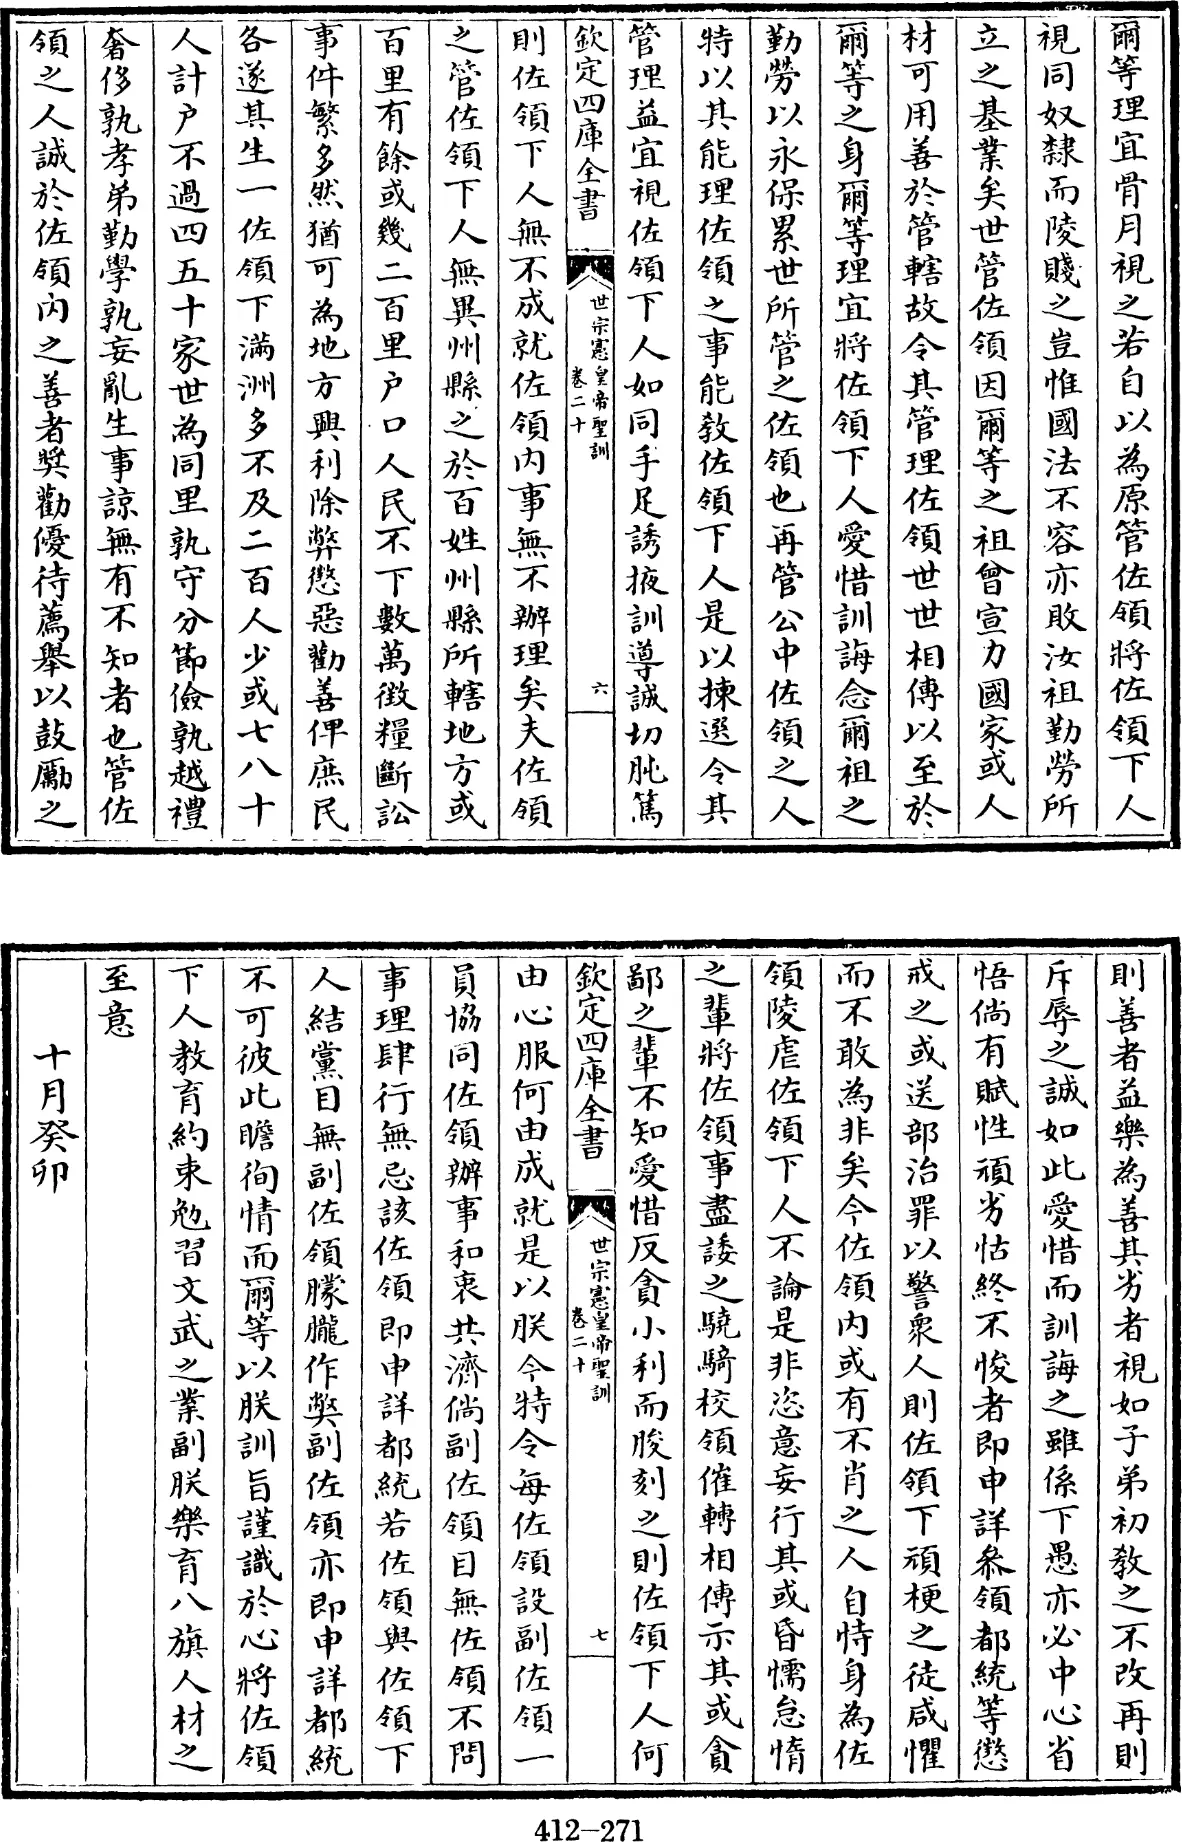 爾等理宜骨月視之若自以為原管佐領將佐領下人
視同奴隸而陵賤之豈惟國法不容亦敢汝祖勤勞所
立之基業矣世管佐領因爾等之祖曾宣力國家或人
材可用善於管轄故令其管理佐領世世相傳以至於
爾等之身爾等理宜將佐領下人愛惜訓誨念爾祖之
勤勞以永保累世所管之佐領也再管公中佐領之人
特以其能理佐領之事能教佐領下人是以揀選令其
管理益宜視佐領下人如同手足誘掖訓導誠切肫篤
欽定四庫全書
世宗憲皇帝聖訓
卷二十
六
則佐領下人無不成就佐領内事無不辦理矣夫佐領
之管佐領下人無異州縣之於百姓州縣所轄地方或
百里有餘或幾二百里户口人民不下數萬徵糧斷訟
事件繁多然猶可為地方興利除弊懲惡勸善俾庶民
各遂其生一佐領下滿洲多不及二百人少或七八十
人計户不過四五十家世為同里孰守分節儉孰越禮
奢侈孰孝弟勤學孰妄亂生事諒無有不知者也管佐
領之人誠於佐領内之善者奬勸優待薦舉以鼓勵之
則善者益樂為善其劣者視如子弟初教之不改再則
斥辱之誠如此愛惜而訓誨之雖係下愚亦必中心省
悟倘有賦性頑劣怙終不悛者即申詳叅領都統等懲
戒之或送部治罪以警衆人則佐領下頑梗之徒咸懼
而不敢為非矣今佐領内或有不肖之人自恃身為佐
領陵虐佐領下人不論是非恣意妄行其或昏懦怠惰
之輩將佐領事盡諉之驍騎校領催轉相傳示其或貪
鄙之輩不知愛惜反貪小利而朘刻之則佐領下人何
欽定四庫全書
世宗憲皇帝聖訓
卷二十
七
由心服何由成就是以朕今特令每佐領設副佐領一
員協同佐領辦事和衷共濟倘副佐領目無佐領不問
事理肆行無忌該佐領即申詳都統若佐領與佐領下
人結黨目無副佐領朦朧作弊副佐領亦即申詳都統
不可彼此瞻徇情而爾等以朕訓旨謹識於心將佐領
下人教育約束勉習文武之業副朕樂育八旗人材之
至意
十月癸卯
412-271